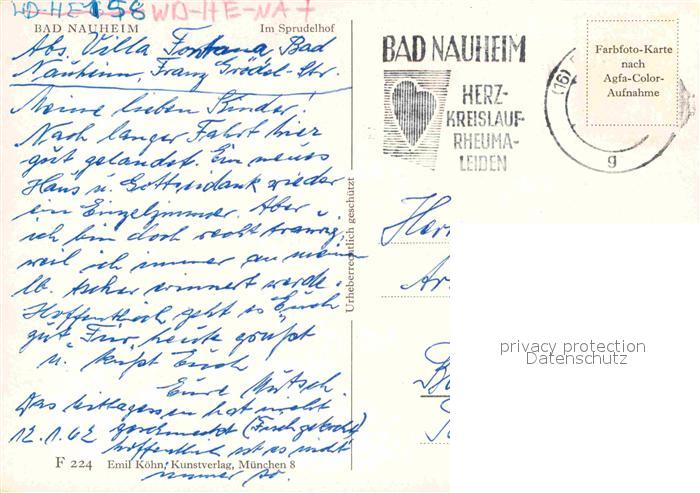 WD-HE 158 WD-HE-NA 7
BAD NAUHEIM Im Sprudelhof
Abs. Villa Fontana Bad
Nauheim, Franz Grödel-Str.
Meine lieben Kinder!
Nach langer Fahrt hier
gut gelandet. Ein neues
Haus u. Gottseidank wieder
ein Einzelzimmer. Aber
ich bin doch recht traurig,
weil ich immer an meine
lb. erinnert werde.
Hoffentlich geht es Euch
gut. Für heute grüßt
u. küßt Euch
Eure
Das Mittagessen hat nicht
12.1.62 geschmeckt (Fisch gekocht)
hoffentlich ist es nicht
immer so.
F 224 Emil Köhn, Kunstverlag, München 8
Urheberrechtlich geschützt
BAD NAUHEIM
HERZ-
KREISLAUF-
RHEUMA-
LEIDEN
(16)
g
Farbfoto-Karte
nach
Agfa-Color-
Aufnahme
privacy protection
Datenschutz